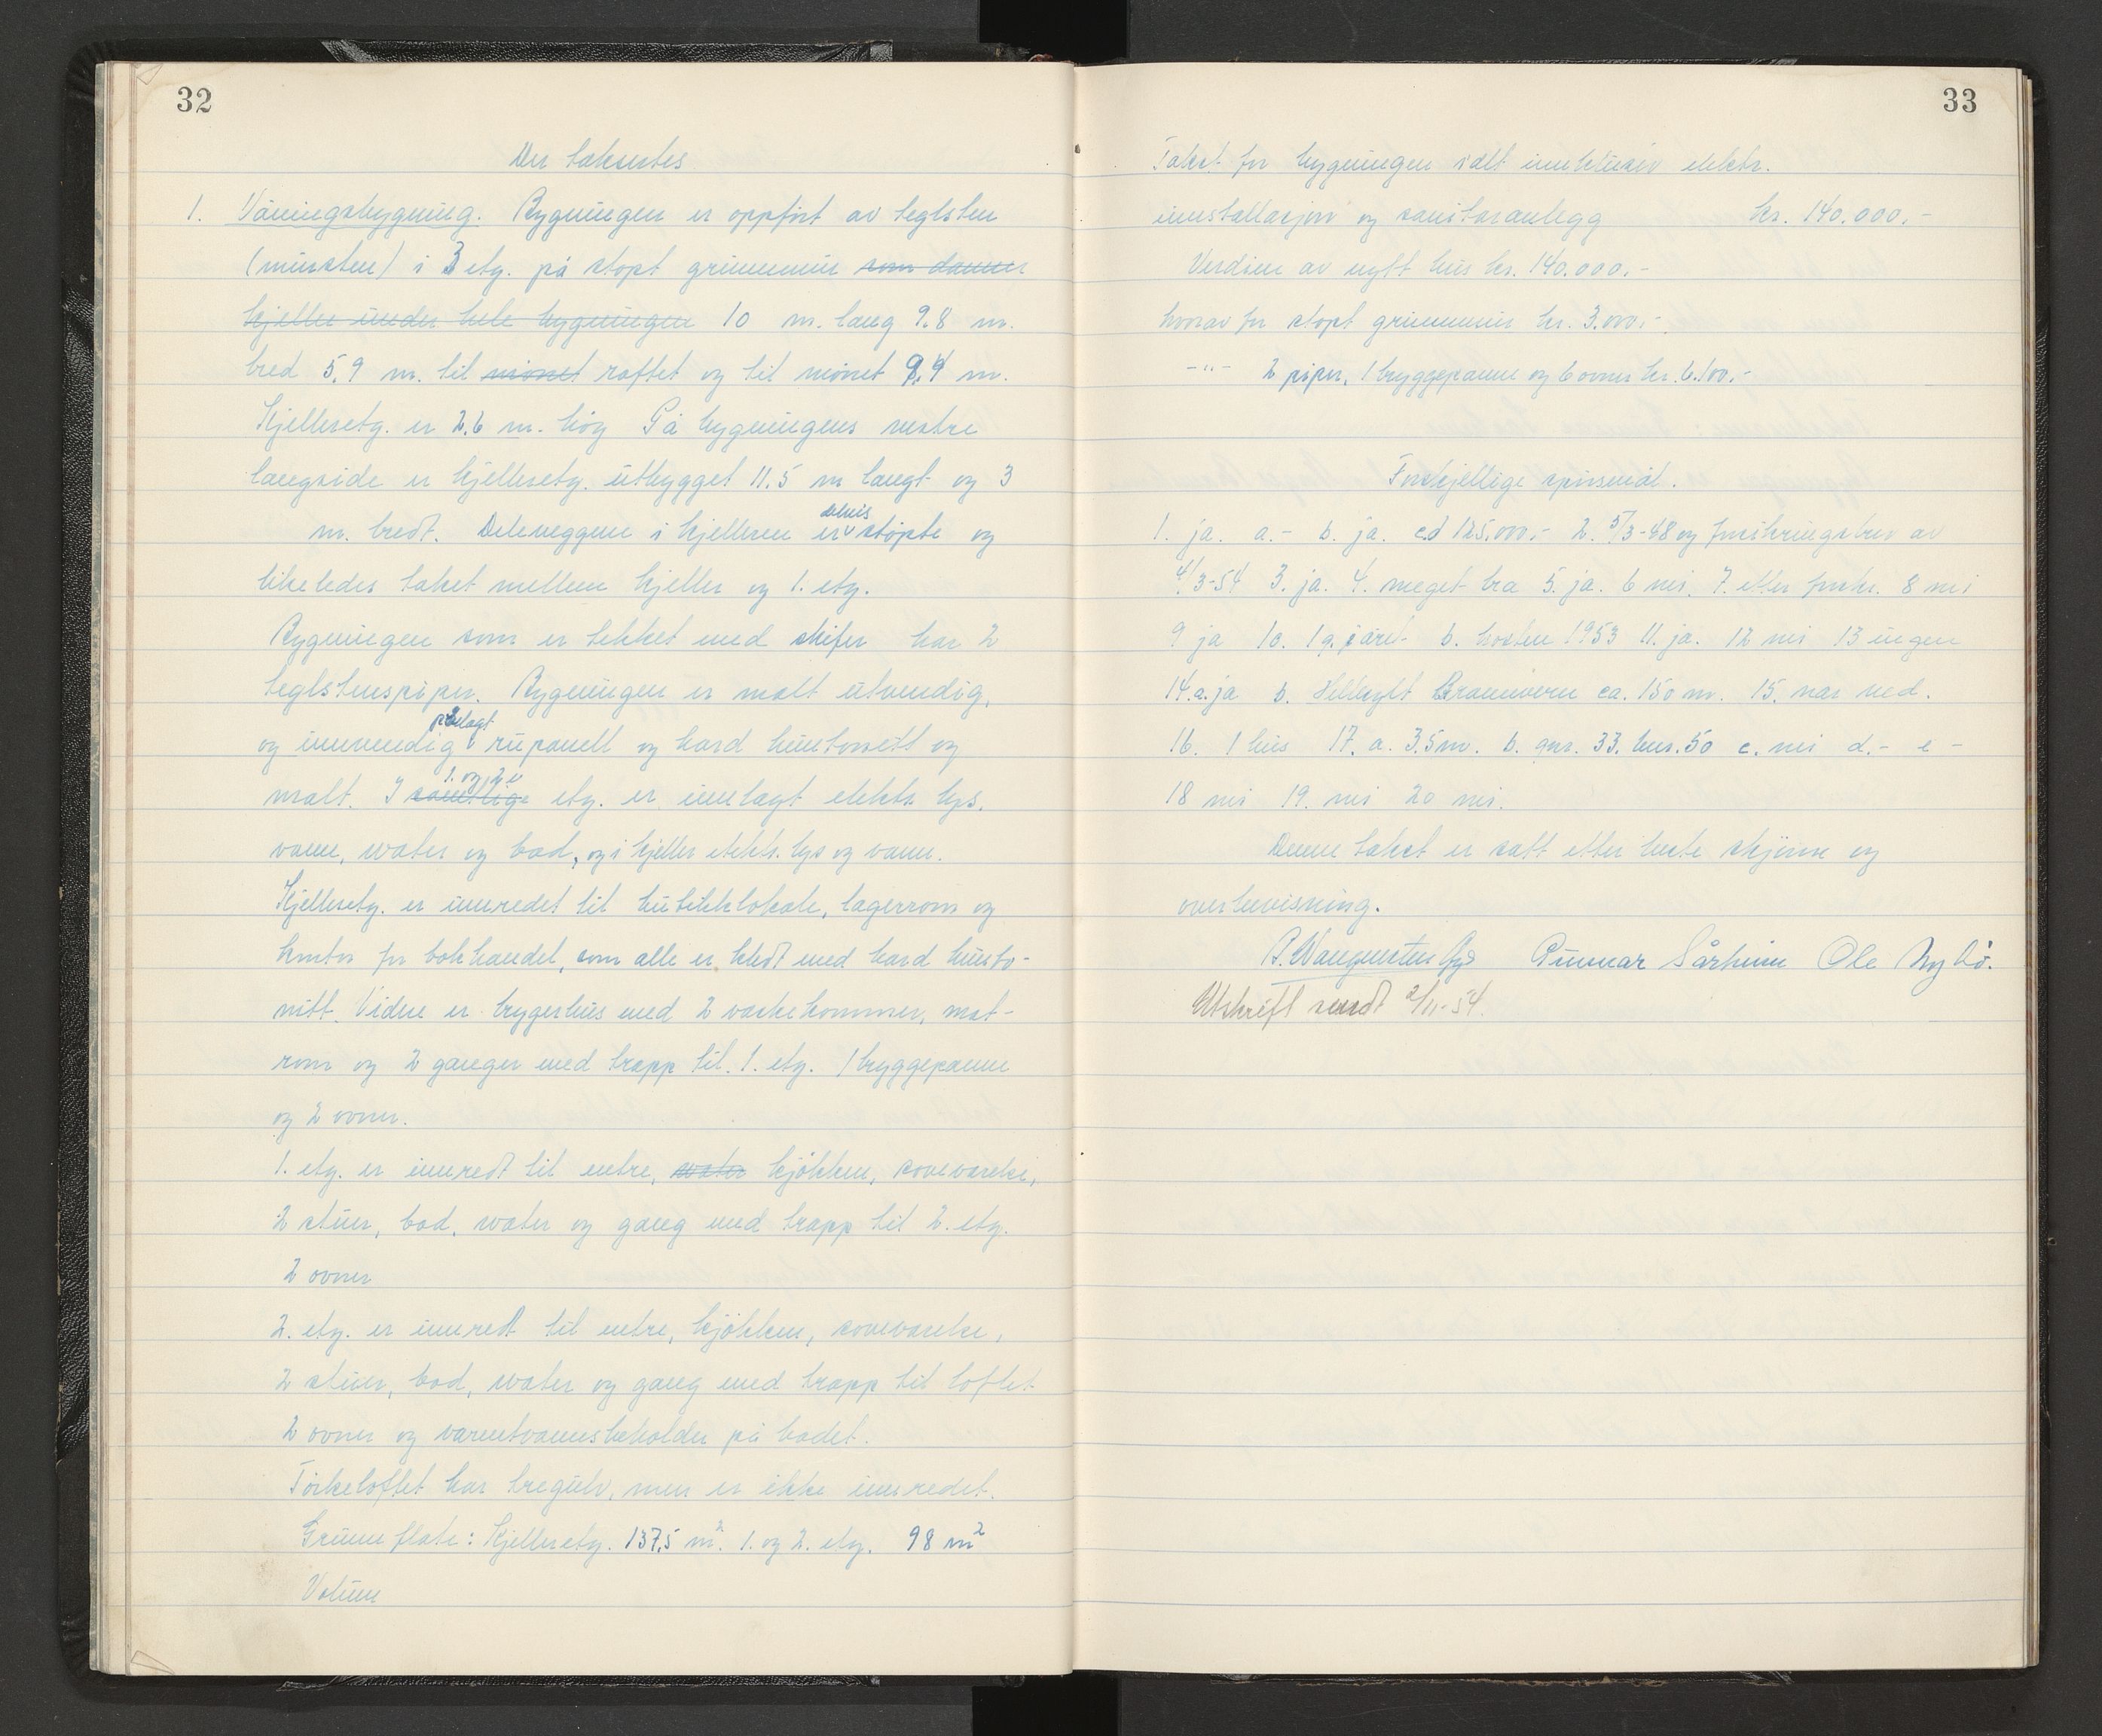 32
Der taksertes
1. Våningsbygning. Bygningen er oppført av teglsten
(mursten) i 3 etg. på støpt grunnmur som danner
kjeller under hele bygningen 10 m. lang 9.8 m.
bred 5.9 m. til mønet røftet og til mønet 9.4 m.
Kjelleretg. er 2.6 m. høg På bygningens vestre
langside er kjelleretg. utbygget 11.5 m langt og 3
m. bredt. Deleveggene i kjelleren er delvis støpte og
likeledes taket mellem kjeller og 1. etg.
Bygningen som er tekket med skifer har 2
teglstenspiper. Bygningen er malt utvendig,
og innvendig pålagt rupanell og hard huntonitt og
malt. I samtlige 1. og 2. etg. er innlagt elektr. lys.
vann, water og bad, og i kjeller elektr. lys og vann.
Kjelleretg. er innredet til butikklokale, lagerrom og
kontor for bokhandel, som alle er kledt med hard hunto-
nitt. Videre er bryggerhus med 2 vaskekommer, mat-
rom og 2 ganger med trapp til. 1. etg. 1 bryggepanne
og 2 ovner.
1. etg. er innredt til entre, water kjøkken, soveværelse,
2 stuer, bad, water og gang med trapp til 2. etg.
2 ovner
2. etg. er innredt til entre, kjøkken, soveværelse,
2 stuer, bad, water og gang med trapp til loftet
2 ovner og varmtvannsbeholder på badet.
Tørkeloftet har tregulv, men er ikke innredet.
Grunnflate: Kjelleretg. 137,5 m². 1. og 2. etg. 98 m²
Volum
33
Takst for bygningen i alt innklusiv elektr.
innstallasjon og sanitæranlegg kr. 140.000.-
Verdien av nytt hus kr. 140.000.-
hvorav for støpt grunnmur kr. 3.000.-
-"- 2 piper, 1 bryggepanne og 6 ovner kr. 6.100.-
Forskjellige spørsmål.
1. ja. a.- b. ja. c.d 125.000.- 2. 5/3-48 og forsikringsbrev av
4/3-54 3. ja. 4. meget bra 5. ja. 6 nei. 7. etter forskr. 8 nei
9 ja 10. 1 g. i året b. høsten 1953 11. ja. 12 nei 13 ingen
14. a. ja b. Hellesylt Brannvern ca. 150 m. 15. nær ved.
16. 1 hus 17. a. 3.5 m. b. gnr. 33. bnr. 50 c. nei d.- e -
18 nei 19. nei 20 nei.
Denne takst er satt etter beste skjønn og
overbevisning.
Gunnar Ole
Utskrift sendt 2/11-54.